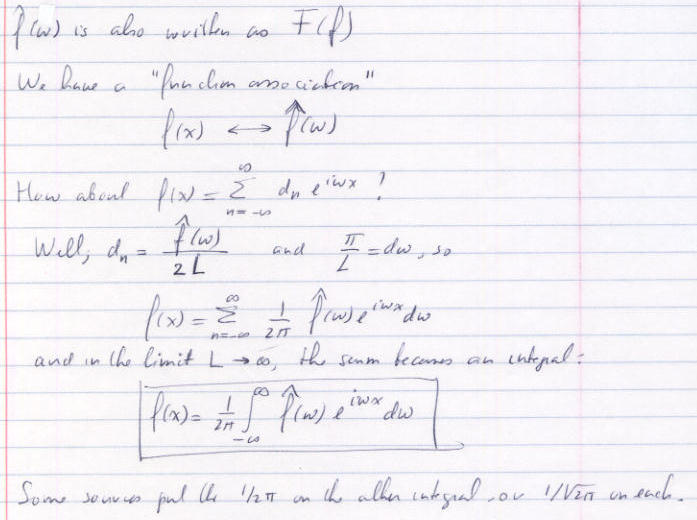 f̂(ω) is also written as F(f)
We have a "function association"
f(x) ↔ f̂(ω)
How about f(x) = ∑_{n=-∞}^{∞} dₙ e^{iωx} ?
Well, dₙ = f̂(ω)/2L and π/L = dω, so
f(x) = ∑_{n=-∞}^{∞} 1/2π f̂(ω) e^{iωx} dω
and in the limit L → ∞, the sum becomes an integral:
f(x) = 1/2π ∫_{-∞}^{∞} f̂(ω) e^{iωx} dω
Some sources put the 1/2π on the other integral, or 1/√2π on each.